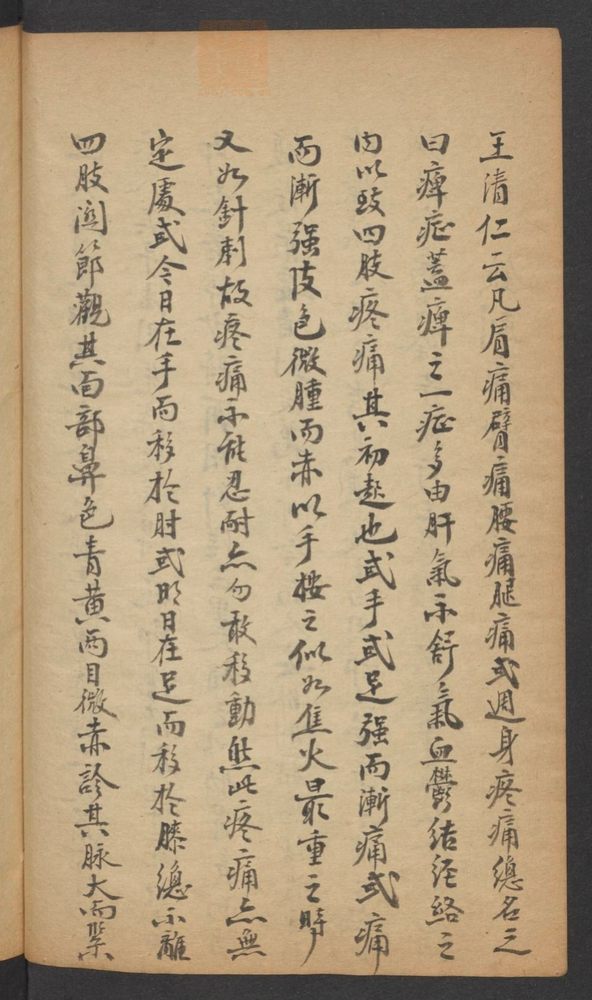 王清仁云凡肩痛臂痛腰痛腿痛或週身疼痛總名之
曰痺症蓋痺之一症多由肝氣不舒氣血鬱結經絡之
内以致四肢疼痛其初起也或手或足强而漸痛或痛
而漸强皮色微腫而赤以手按之似如焦火最重之時
又如針刺故疼痛不能忍耐亦勿敢移動然此疼痛亦無
定處或今日在手而移於肘或明日在足而移於膝總不離
四肢関節觀其面部鼻色青黃两目微赤診其脉大而紧